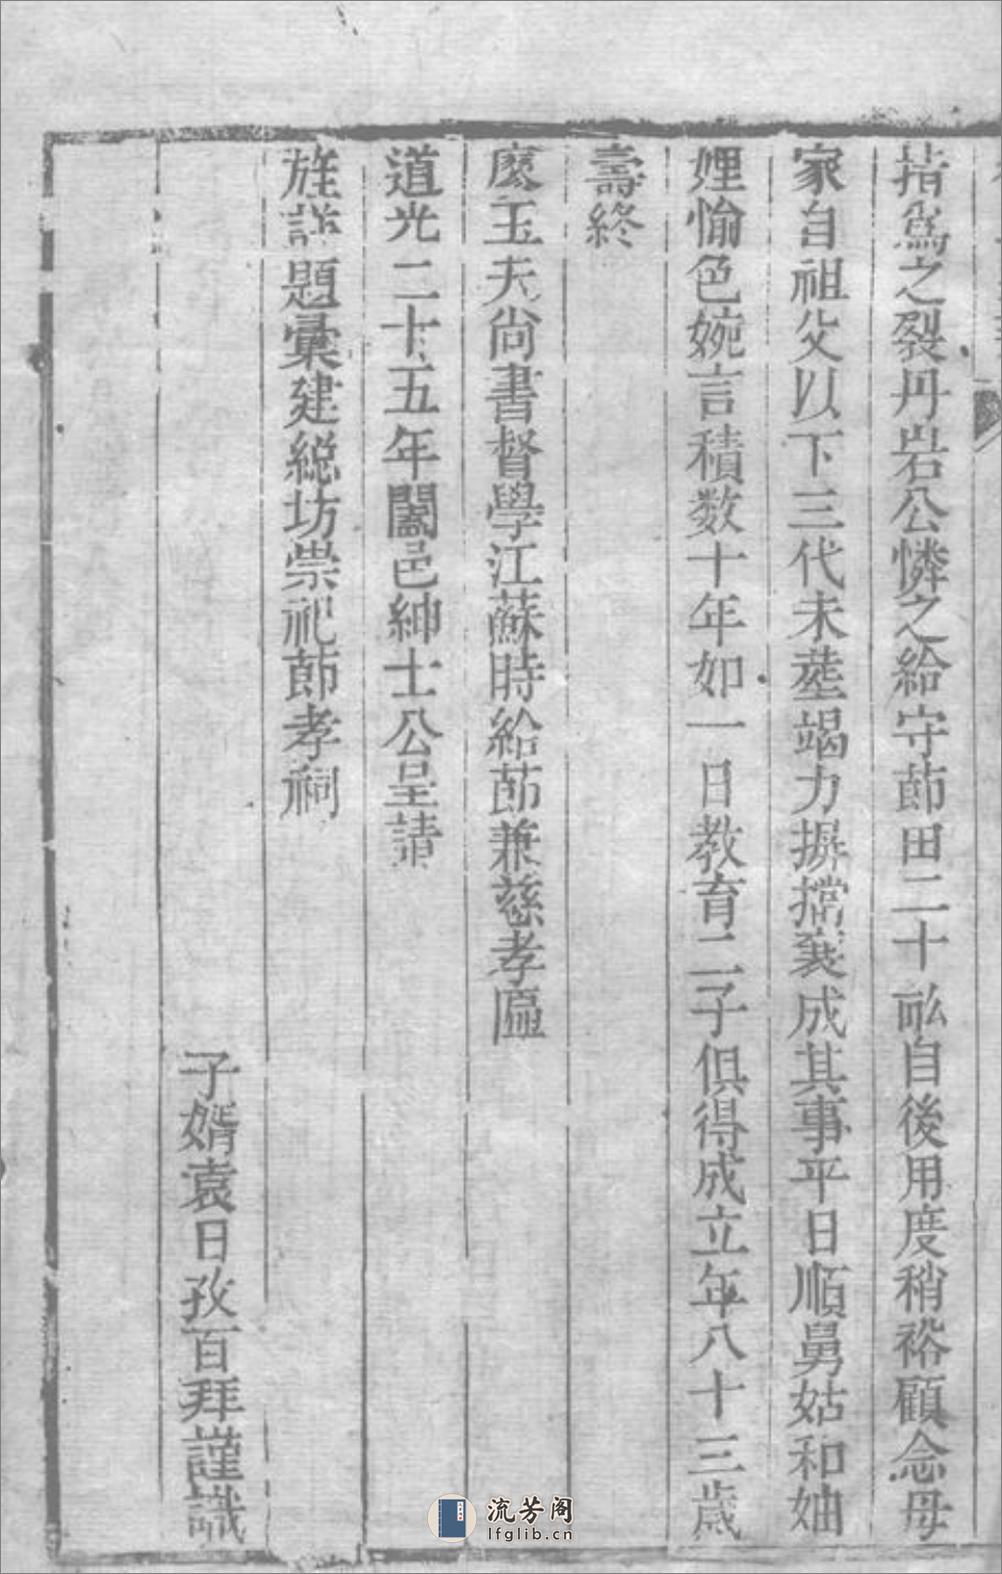 指爲之裂丹岩公憐之給守節田二十畝自後用度稍裕顧念母
家自祖父以下三代未塟竭力摒擋襄成其事平日順舅姑和妯
娌愉色婉言積数十年如一日教育二子俱得成立年八十三歲
壽終
廖玉夫尚書督學江蘇時給節兼慈孝匾
道光二十五年闔邑紳士公呈請
旌詳題彙建総坊崇祀節孝祠
子婿袁日孜百拜謹識
流芳阁
lfglib.cn